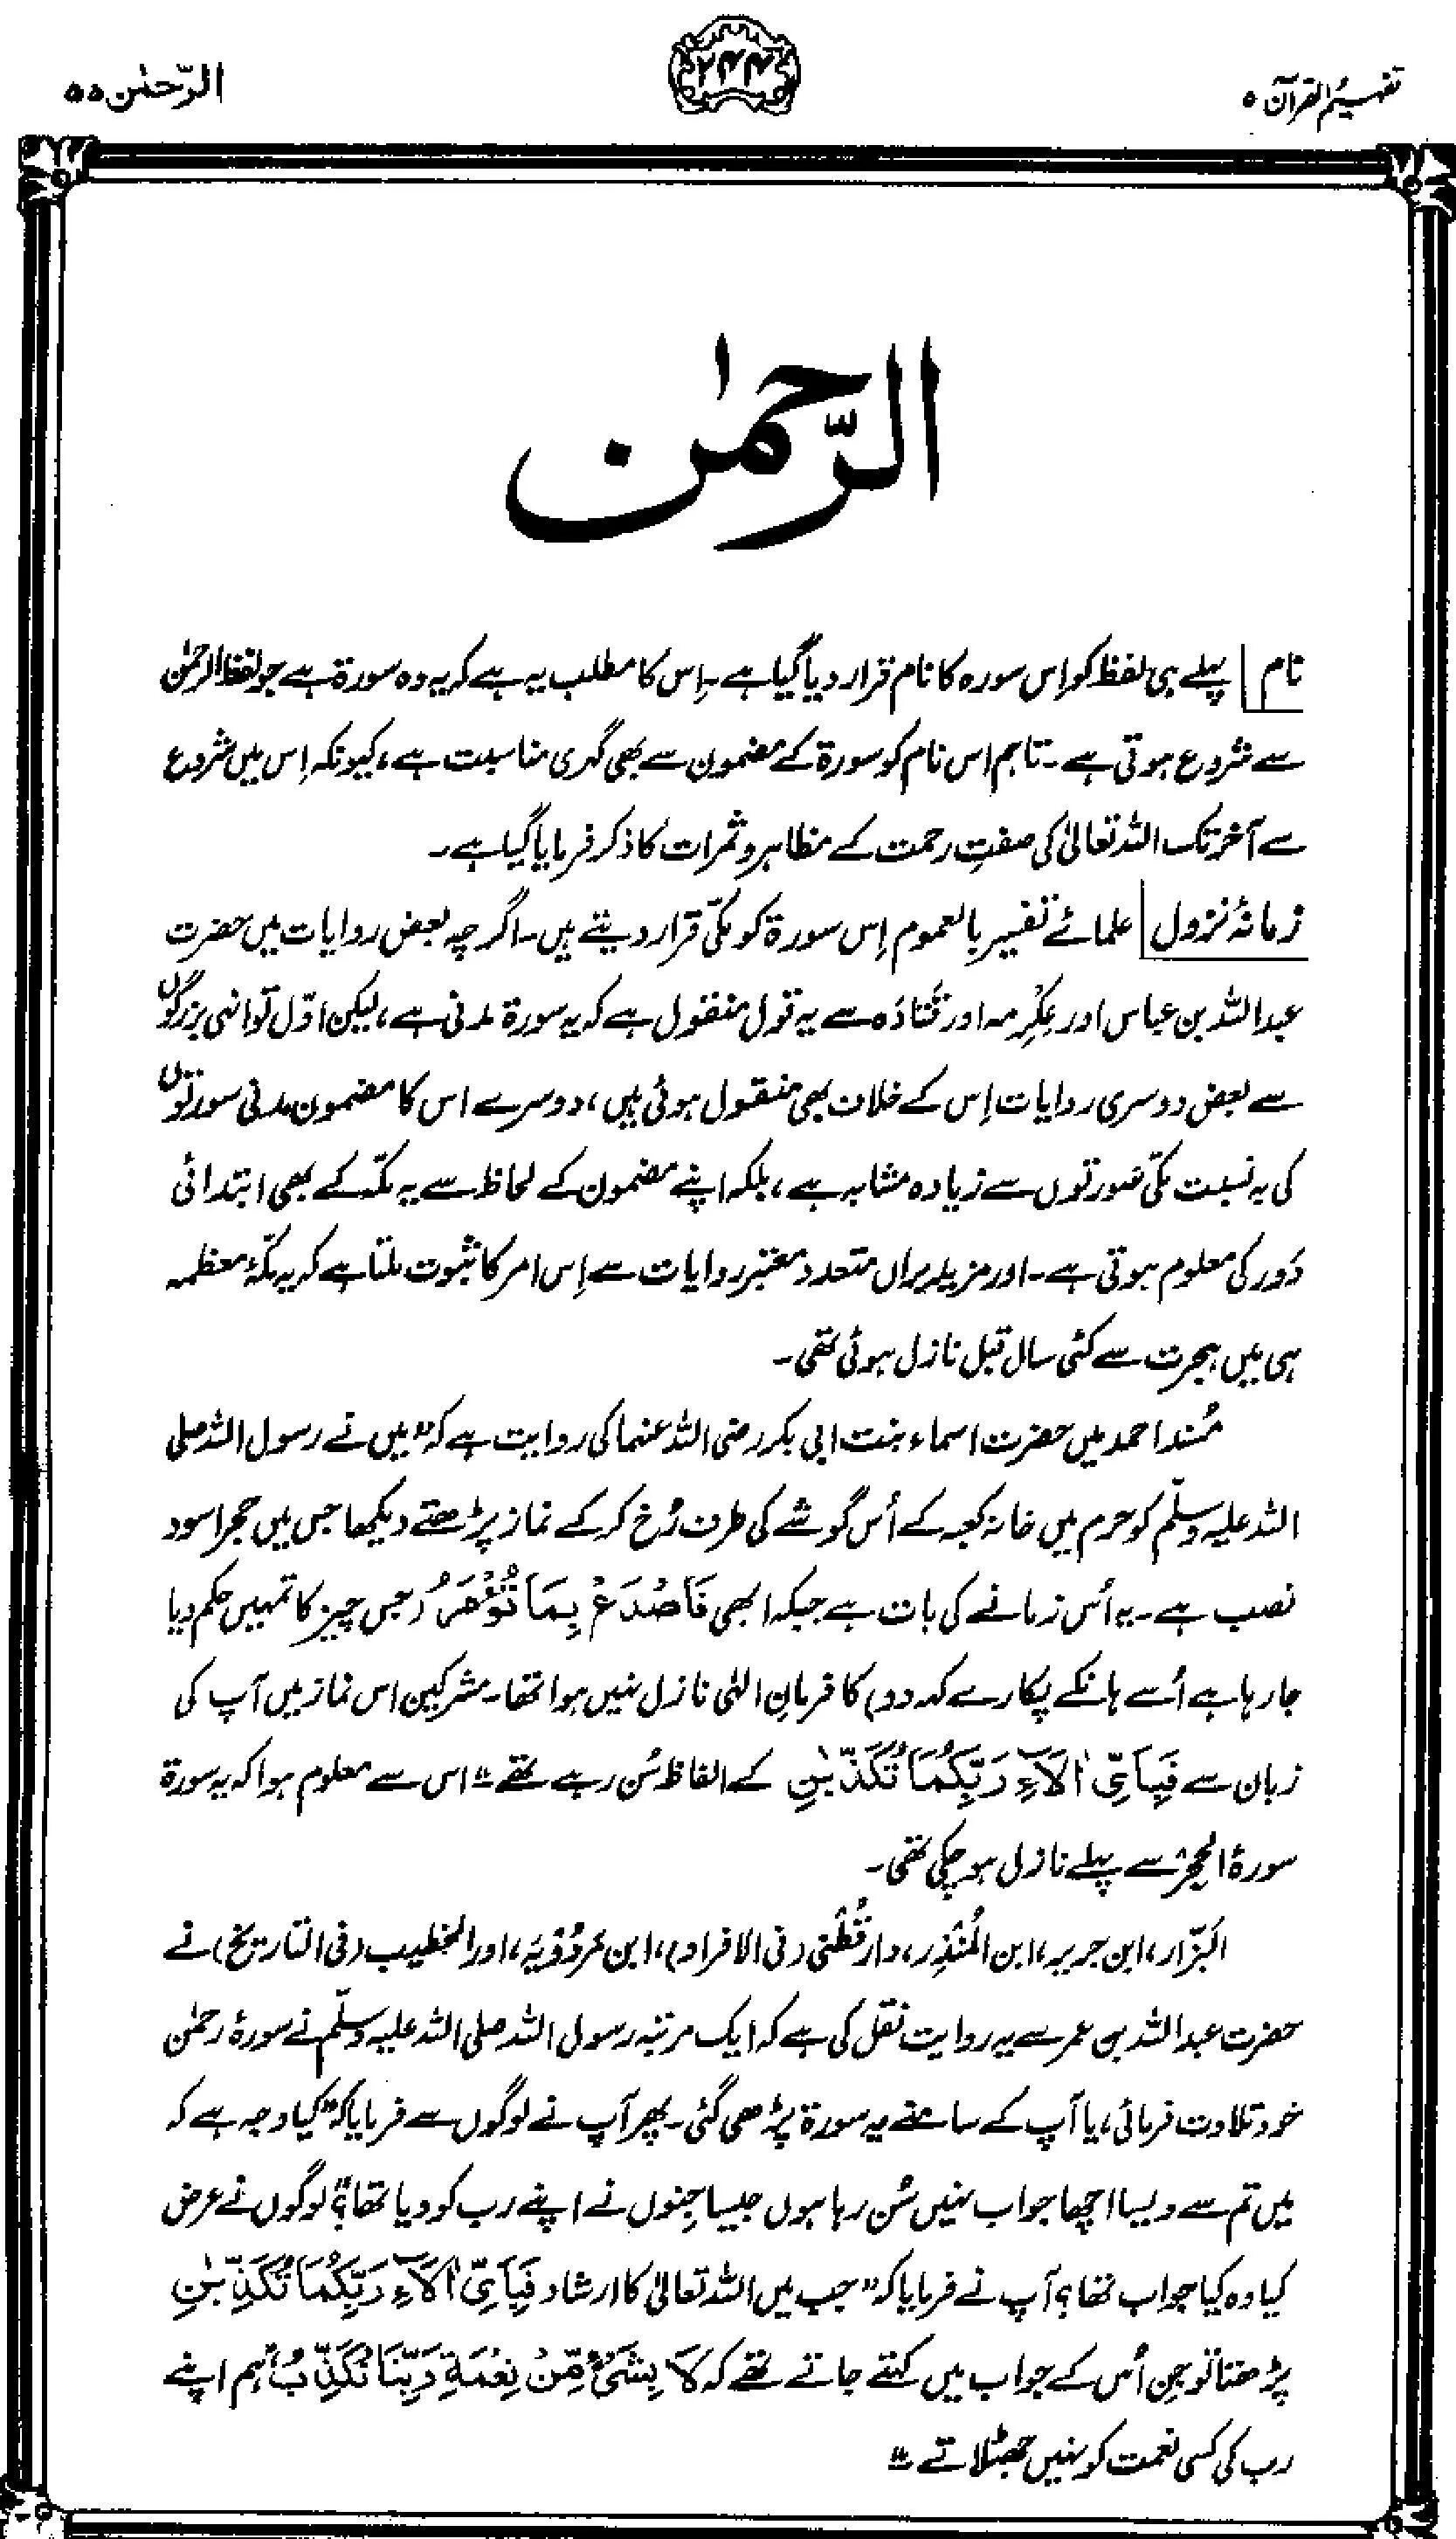 تفہیم القرآن ۵
۲۴۴
الرّحمٰن ۵۵
الرّحمٰن
نام پہلے ہی لفظ کو اِس سورہ کا نام قرار دیا گیا ہے۔ اِس کا مطلب یہ ہے کہ یہ وہ سورۃ ہے جو لفظ الرحمٰن
سے شروع ہوتی ہے۔ تاہم اس نام کو سورۃ کے مضمون سے بھی گہری مناسبت ہے، کیونکہ اِس میں شروع
سے آخر تک اللہ تعالیٰ کی صفتِ رحمت کے مظاہر و ثمرات کا ذکر فرمایا گیا ہے۔
زمانۂ نزول علمائے تفسیر بالعموم اِس سورۃ کو مکّی قرار دیتے ہیں۔ اگرچہ بعض روایات میں حضرت
عبداللہ بن عباس اور عِکْرِمہ اور قَتَادَہ سے یہ قول منقول ہے کہ یہ سورۃ مدنی ہے، لیکن اوّل تو انہی بزرگوں
سے بعض دوسری روایات اِس کے خلاف بھی منقول ہوئی ہیں، دوسرے اس کا مضمون مدنی سورتوں
کی بہ نسبت مکّی سُورتوں سے زیادہ مشابہ ہے، بلکہ اپنے مضمون کے لحاظ سے یہ مکّہ کے بھی ابتدائی
دَور کی معلوم ہوتی ہے۔ اور مزید براں متعدد معتبر روایات سے اِس امر کا ثبوت ملتا ہے کہ یہ مکّۂ معظمہ
ہی میں ہجرت سے کئی سال قبل نازل ہوئی تھی۔
مُسند احمد میں حضرت اسماء بنت ابی بکر رضی اللہ عنہما کی روایت ہے کہ ”میں نے رسول اللہ صلی
اللہ علیہ وسلّم کو حرم میں خانہ کعبہ کے اُس گوشے کی طرف رُخ کر کے نماز پڑھتے دیکھا جس میں حجر اسود
نصب ہے۔ یہ اُس زمانے کی بات ہے جبکہ ابھی فَاصْدَعْ بِمَا تُؤْمَرُ (جس چیز کا تمہیں حکم دیا
جا رہا ہے اُسے ہانکے پکارے کہہ دو) کا فرمانِ الٰہی نازل نہیں ہوا تھا۔ مشرکین اس نماز میں آپ کی
زبان سے فَبِاَیِّ اٰلَآءِ رَبِّکُمَا تُکَذِّبٰنِ کے الفاظ سُن رہے تھے“ اس سے معلوم ہوا کہ یہ سورۃ
سورۂ الحِجْر سے پہلے نازل ہو چکی تھی۔
البَزّار، ابن جریر، ابن المُنْذِر، دارقُطْنی (فی الافراد)، ابن مَرْدُوْیَہ، اور الخطیب (فی التاریخ) نے
حضرت عبداللہ بن عمر سے یہ روایت نقل کی ہے کہ ایک مرتبہ رسول اللہ صلی اللہ علیہ وسلّم نے سورۂ رحمٰن
خود تلاوت فرمائی، یا آپ کے سامنے یہ سورۃ پڑھی گئی۔ پھر آپ نے لوگوں سے فرمایا کہ ”کیا وجہ ہے کہ
میں تم سے ویسا اچھا جواب نہیں سُن رہا ہوں جیسا جِنوں نے اپنے رب کو دیا تھا؟“ لوگوں نے عرض
کیا وہ کیا جواب تھا؟ آپ نے فرمایا کہ ”جب میں اللہ تعالیٰ کا ارشاد فَبِاَیِّ اٰلَآءِ رَبِّکُمَا تُکَذِّبٰنِ
پڑھتا تو جِن اُس کے جواب میں کہتے جاتے تھے کہ لَا بِشَیْءٍ مِّنْ نِعْمَۃِ رَبِّنَا نُکَذِّبُ، ہم اپنے
رب کی کسی نعمت کو نہیں جھٹلاتے“